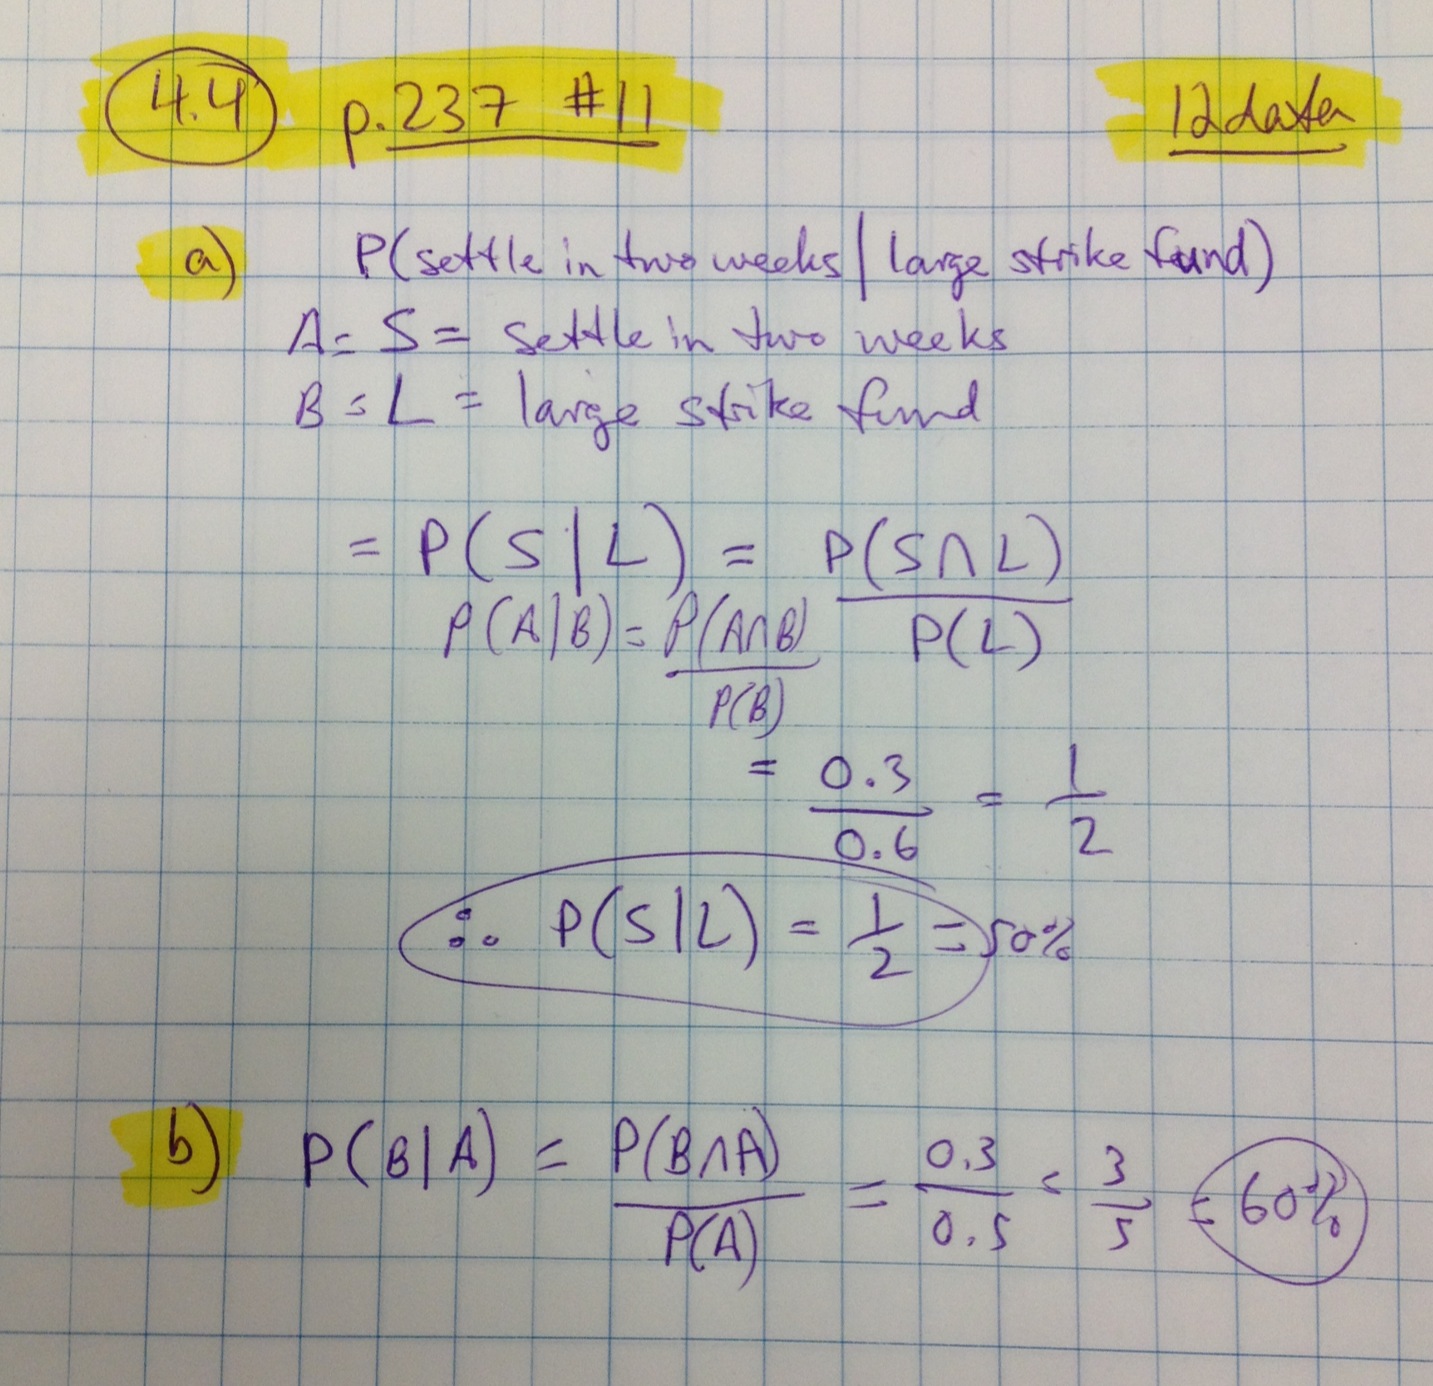 4.4 p.237 #11 12data
a) P(settle in two weeks | large strike fund)
A = S = settle in two weeks
B = L = large strike fund
= P(S|L) = P(S∩L) / P(L)
P(A|B) = P(A∩B) / P(B)
= 0.3 / 0.6 = 1/2
∴ P(S|L) = 1/2 = 50%
b) P(B|A) = P(B∩A) / P(A) = 0.3 / 0.5 = 3/5 = 60%